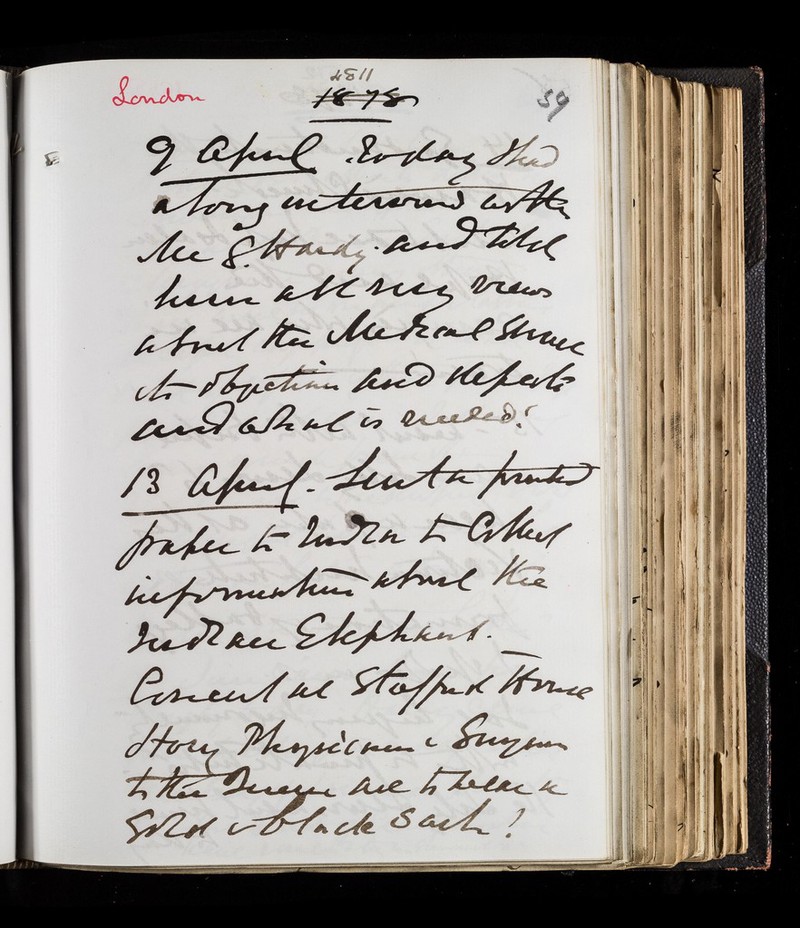 London
1878
59
9 April. Today I had
a long interview with
Mr G. Hardy. and told
him all my views
about the Medical Service
its objections and defects
and what is needed!
13 April. Sent a printed
paper to India to Collect
information about the
Indian Elephant.
Concert at Stafford House
Hony Physicians & Surgeons
to the Queen are to wear a
Gold & black Sash!